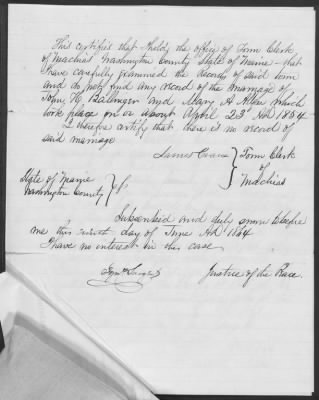 This certifies that I hold the office of Town Clerk
of Machias Washington County State of Maine - that
I have carefully examined the records of said town
and do not find any record of the marriage of
John H. and Mary A Allen which
took place on or about April 23d AD 1854
I therefore certify that there is no record of
said marriage
James Crane } Town Clerk
of
Machias
State of Maine
Washington County } S
Subscribed and duly sworn to before
me this first day of June AD 1864
I have no interest in this case
Justice of the Peace